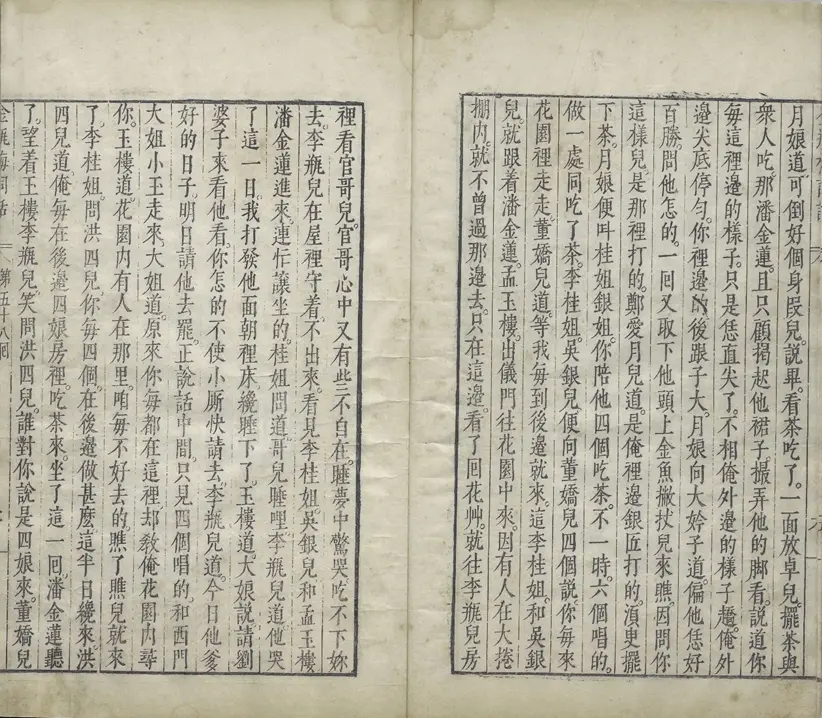 月娘道可倒好個身叚兒。說畢。看茶吃了。一面放卓兒。擺茶與
衆人吃。那潘金蓮。且只顧揭起他裙子。撮弄他的脚看。說道你
每這裡邊的樣子。只是恁直尖了。不相俺外邊的樣子趫。俺外
邊尖底停勻。你裡邊的後跟子大。月娘向大妗子道。偏他恁好
百勝。問他怎的。一回又取下他頭上金魚撇杖兒來瞧。因問你
這樣兒。是那裡打的。鄭愛月兒道。是俺裡邊銀匠打的。須臾擺
下茶。月娘便叫桂姐銀姐。你陪他四個吃茶。不一時。六個唱的。
做一處同吃了茶。李桂姐。吳銀兒便向董嬌兒四個說。你每來
花園裡走走。董嬌兒道。等我每到後邊就來。這李桂姐。和吳銀
兒。就跟着潘金蓮。孟玉樓。出儀門往花園中來。因有人在大捲
棚內。就不曾過那邊去。只在這邊。看了回花艸。就往李瓶兒房
裡看官哥兒。官哥心中又有些不自在。睡夢中驚哭吃不下妳
去。李瓶兒在屋裡守着。不出來。看見李桂姐。吳銀兒和孟玉樓
潘金蓮進來。連忙讓坐的。桂姐問道。哥兒睡哩。李瓶兒道。他哭
了這一日。我打發他面朝裡床。纔睡下了。玉樓道。大娘說。請劉
婆子來看他看。你怎的不使小厮快請去。李瓶兒道。今日他爹
好的日子。明日請他去罷。正說話中間。只見四個唱的。和西門
大姐小玉走來。大姐道。原來你每都在這裡。却教俺花園內尋
你。玉樓道。花園內有人在那里。咱每不好去的。瞧了瞧兒就來
了。李桂姐問洪四兒。你每四個。在後邊做甚麽。這半日纔來。洪
四兒道。俺每在後邊四娘房裡。吃茶來。坐了這一回。潘金蓮聽
了。望着玉樓李瓶兒。笑問洪四兒。誰對你說是四娘來。董嬌兒
金瓶梅詞話 第五十八囘